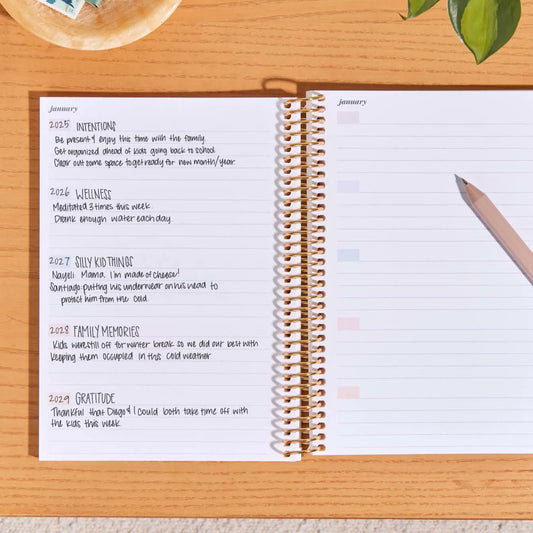 january
2025 INTENTIONS
Be present & enjoy this time with the family.
Get organized ahead of kids going back to school.
Clear out some space to get ready for new month/year.
2026 WELLNESS
Meditated 3 times this week.
Drank enough water each day.
2027 SILLY KID THINGS
Nayeli: Mama. I'm made of cheese!
Santiago: putting his underwear on his head to
protect him from the cold.
2028 FAMILY MEMORIES
Kids were still off for winter break so we did our best with
keeping them occupied in this cold weather.
2029 GRATITUDE
Thankful that Diego & I could both take time off with
the kids this week.
january